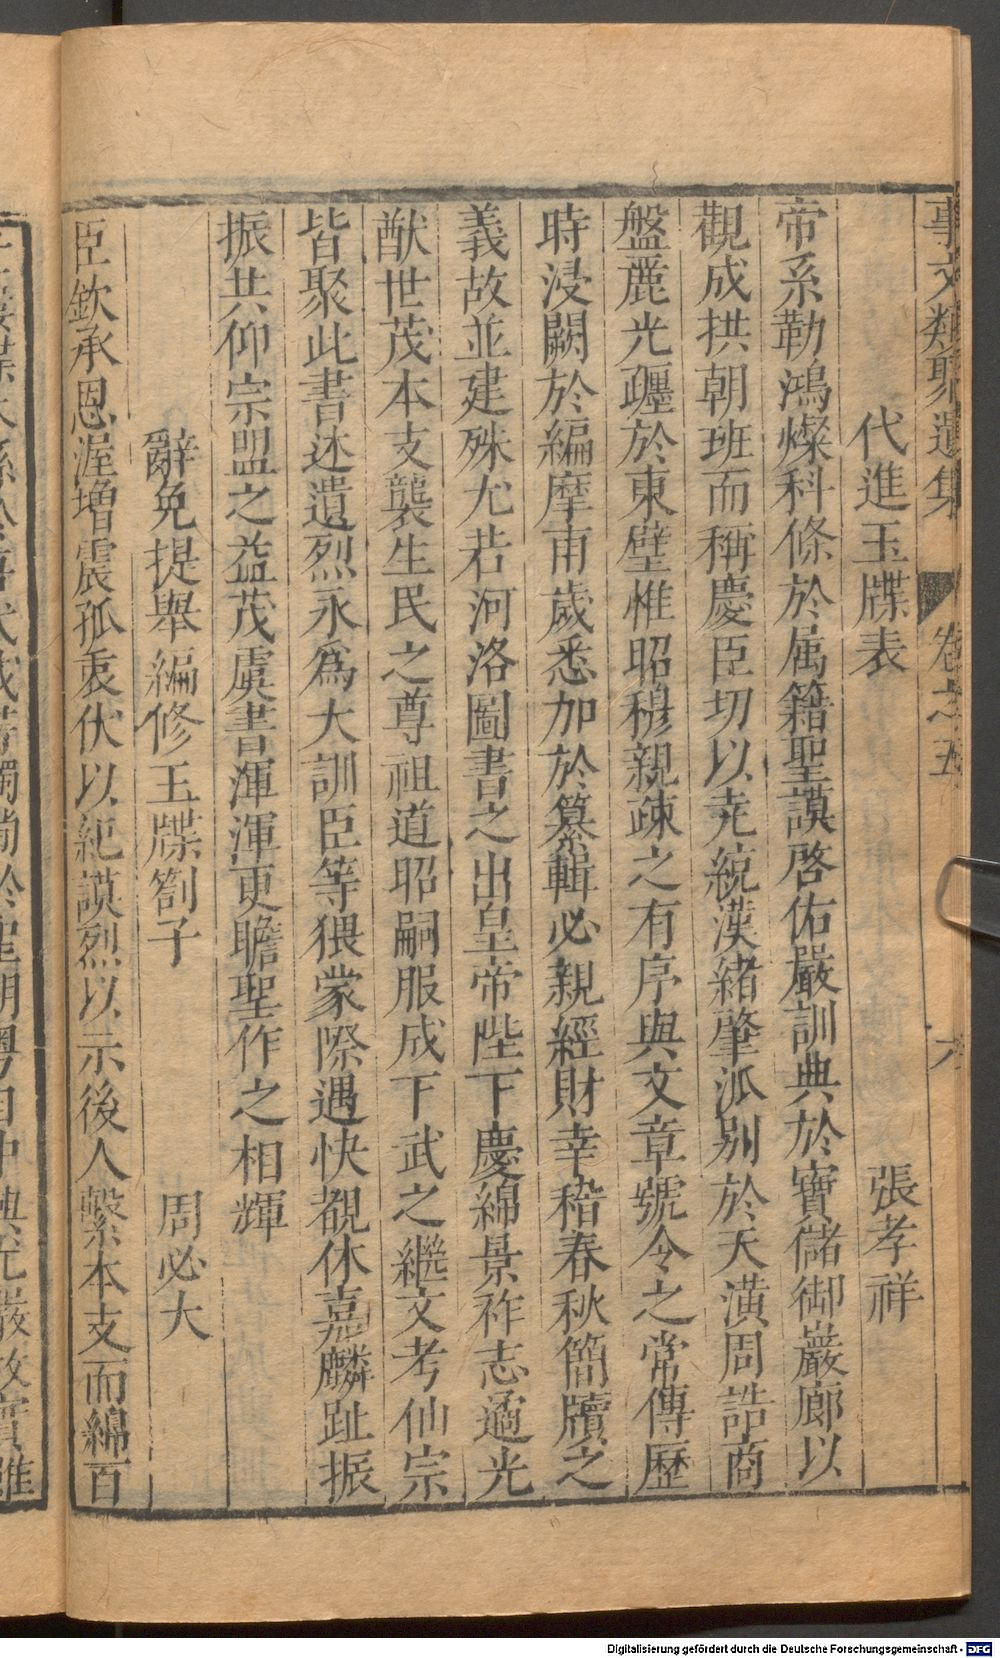 事文類聚遺集 卷之五 六
代進玉牒表 張孝祥
帝系勒鴻燦科條於属籍聖謨啓佑嚴訓典於寶儲御巖廊以
觀成拱朝班而稱慶臣切以尭統漢緒肇派别於天潢周誥商
盤麗光躔於東壁惟昭穆親疎之有序與文章號令之常傳歴
時浸闕於編摩甫歲悉加於纂輯必親經財幸稽春秋簡牘之
義故並建殊尤若河洛圖書之出皇帝陛下慶綿景祚志遹光
猷世茂本支襲生民之尊祖道昭嗣服成下武之繼文考仙宗
皆聚此書述遺烈永爲大訓臣等猥蒙際遇快覩休嘉麟趾振
振共仰宗盟之益茂虞書渾渾更瞻聖作之相輝
辭免提舉編修玉牒劄子 周必大
臣欽承恩渥增震孤衷伏以紀謨烈以示後人繫本支而綿百
Digitalisierung gefördert durch die Deutsche Forschungsgemeinschaft - DFG